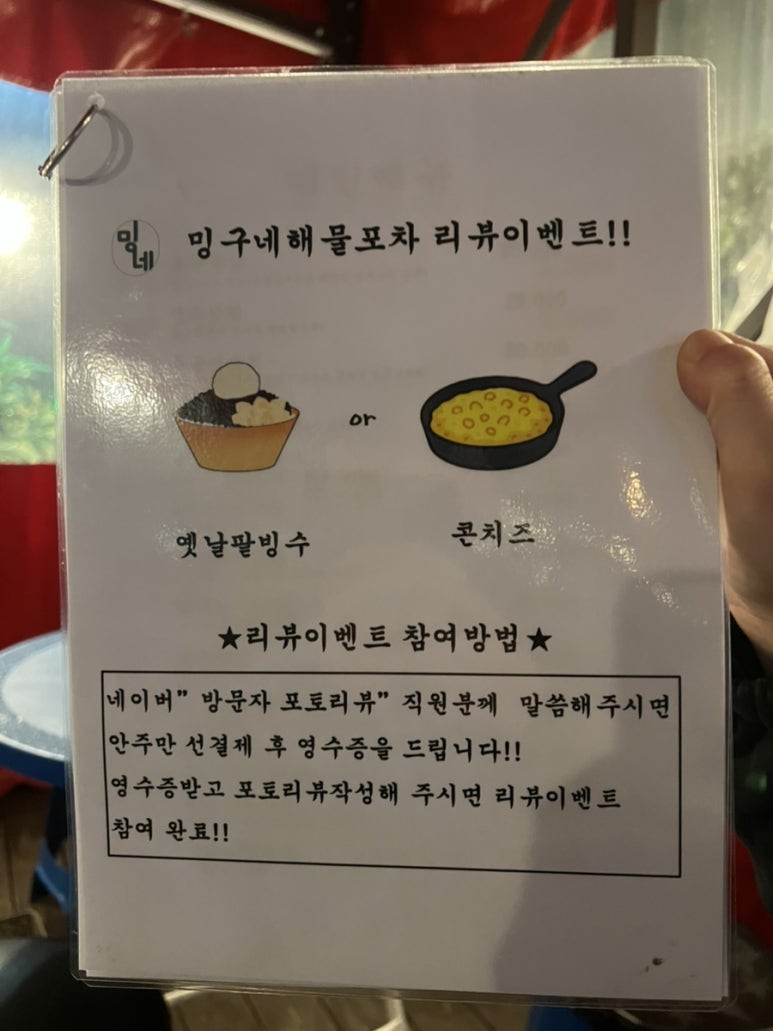 밍네
밍구네해물포차 리뷰이벤트!!
or
옛날팥빙수
콘치즈
★리뷰이벤트 참여방법★
네이버” 방문자 포토리뷰” 직원분께 말씀해주시면
안주만 선결제 후 영수증을 드립니다!!
영수증받고 포토리뷰작성해 주시면 리뷰이벤트
참여 완료!!